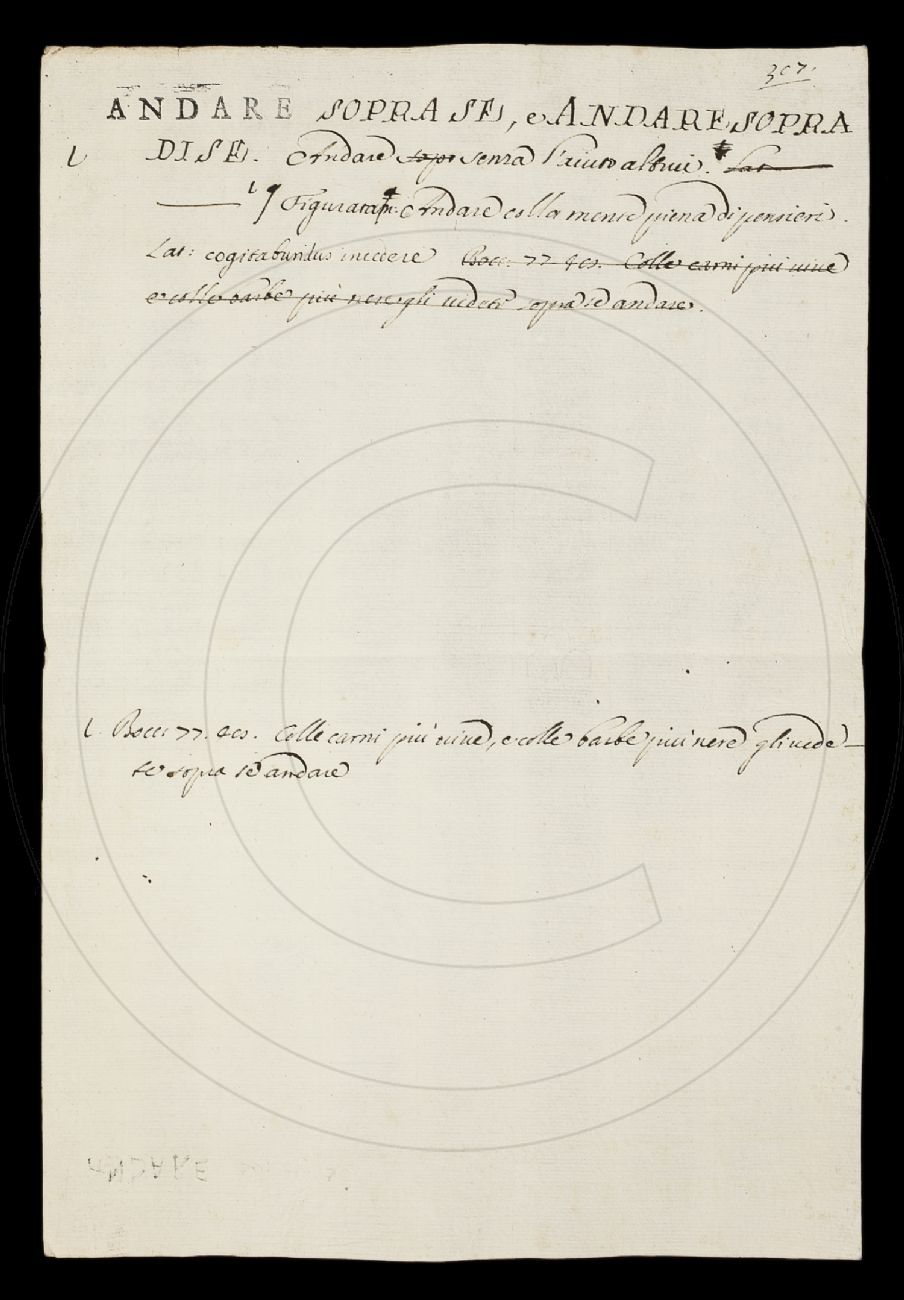 307.
ANDARE SOPRA SE, e ANDARE SOPRA
l DI SE. Andare sopr senza l'aiuto altrui. Lat
l ¶ Figuratam: Andare colla mente piena di pensieri.
Lat: cogitabundus incedere Bocc: 77. 403. Colle carni più vive
e colle barbe più nere gli vedete sopra sé andare.
l. Bocc: 77. 403. Colle carni più vive, e colle barbe più nere gli vede-
te sopra sé andare
ANDARE